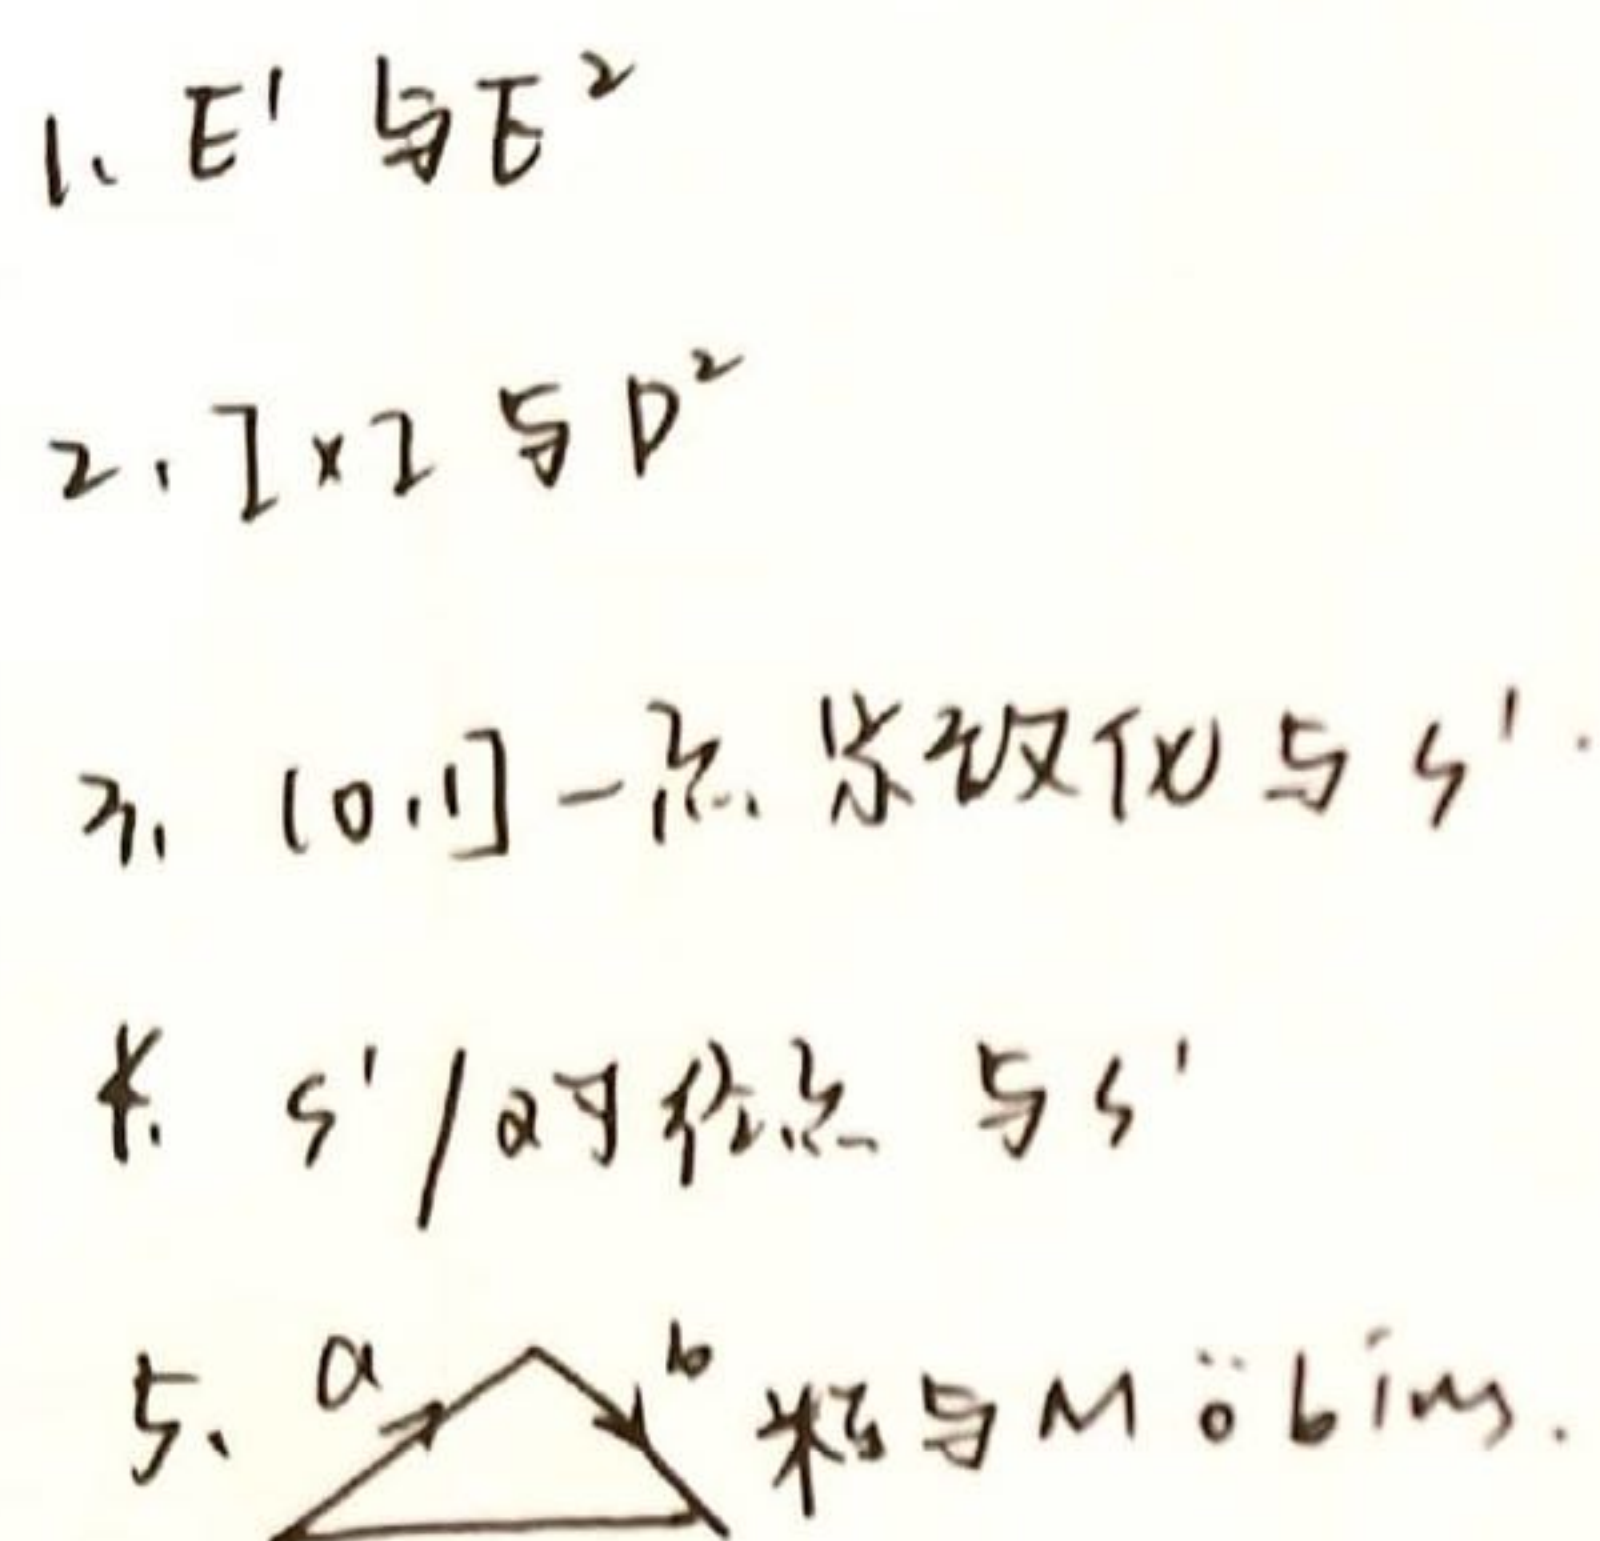 1、E¹ 与 E²
2、I×I 与 D²
3、(0,1] 一点紧致化与 S¹.
4. S¹/对径点 与 S¹
5、a b 粘与Möbius.